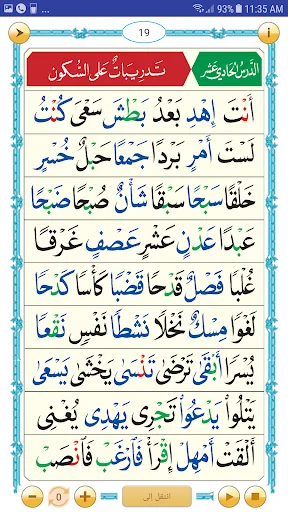 93% 11:35 AM
19
i
الدرس الحادي عشر
تدريبات على السكون
أَنْتَ إِهْدِ بَعْدُ بَطْشَ سَعْىَ كُنْتُ
لَسْتَ أَمْرٍ بَرْدًا جَمْعًا حَبْلٌ خُسْرٍ
خَلْقًا سَبْحًا سَبْقًا شَأْنٌ صُبْحًا ضَبْحًا
عَبْدًا عَدْنٍ عَشْرٍ عَصْفٍ غَرْقًا
غُلْبًا فَصْلٌ قَدْحًا قَضْبًا كَأْسًا كَدْحًا
لَغْوًا مِسْكٌ نَخْلًا نَشْطًا نَفْسٍ نَقْعًا
يُسْرًا أَبْقَى تَرْضَى تَنْسَى يَخْشَى يَسْعَى
يَتْلُوا يَدْعُوا تَجْرِى يَهْدِى يُغْنِى
أَلْقَتْ أَمْهِلْ إِقْرَأْ فَارْغَبْ فَانْصَبْ
− 0 + انتقل إلى